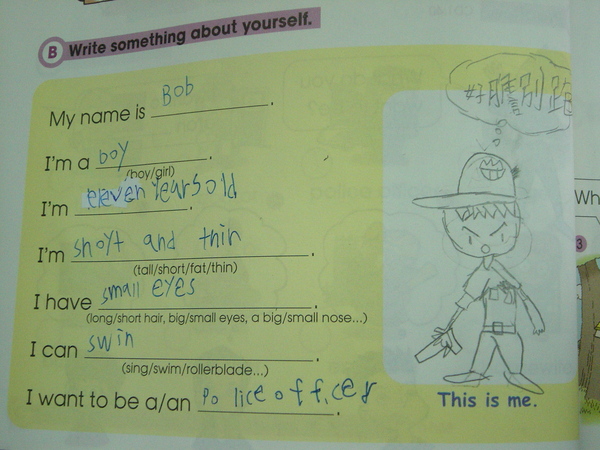 B Write something about yourself.
好膽別跑
My name is Bob.
I'm a boy.
(boy/girl)
I'm eleven Years old.
I'm short and thin.
(tall/short/fat/thin)
I have small eyes.
(long/short hair, big/small eyes, a big/small nose...)
I can swin.
(sing/swim/rollerblade...)
I want to be a/an Police officer.
This is me.
Wh
3